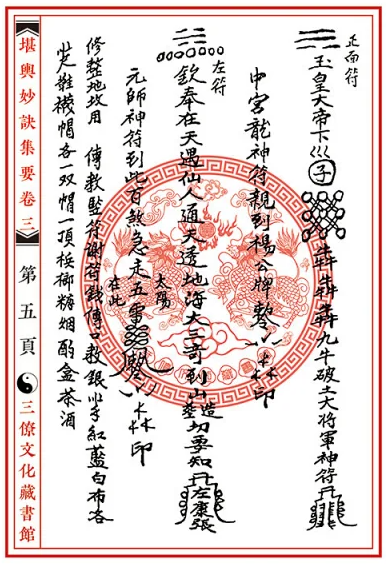 正面符
玉皇大帝下 子 犇犇犇九牛破土大将軍神符
中宮龍神符親到楊公牌 印
左符
欽奉在天遇仙人通天透地海大三奇到山造塟切要知 左廉張
元師神符到此百煞急走五雷 印
太陽在此
修整地坟用 傳教監符謝符錢傳口教銀 紅藍白布各
鞋襪帽各一双帽一頂梹榔精烟酌盒茶酒
堪輿妙訣集要卷三
第五頁
三僚文化藏書館